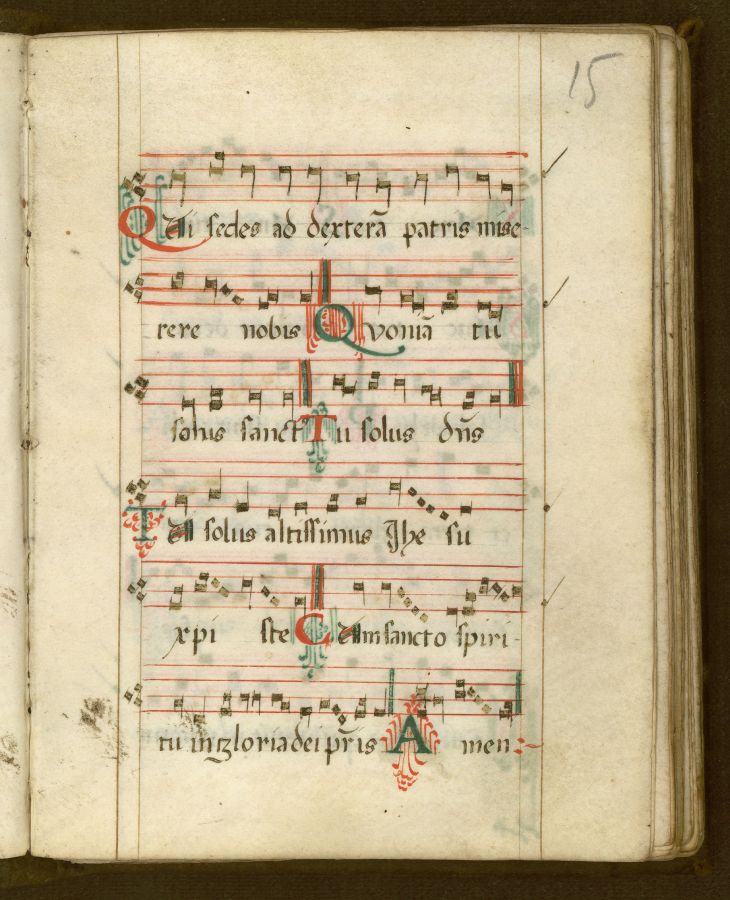 15
Qui sedes ad dexterã patris mise-
rere nobis Quoniã tu
solus sanct Tu solus dñs
Tu solus altissimus Jhe su
xpi ste Cum sancto spiri-
tu in gloria dei pr̃is Amen